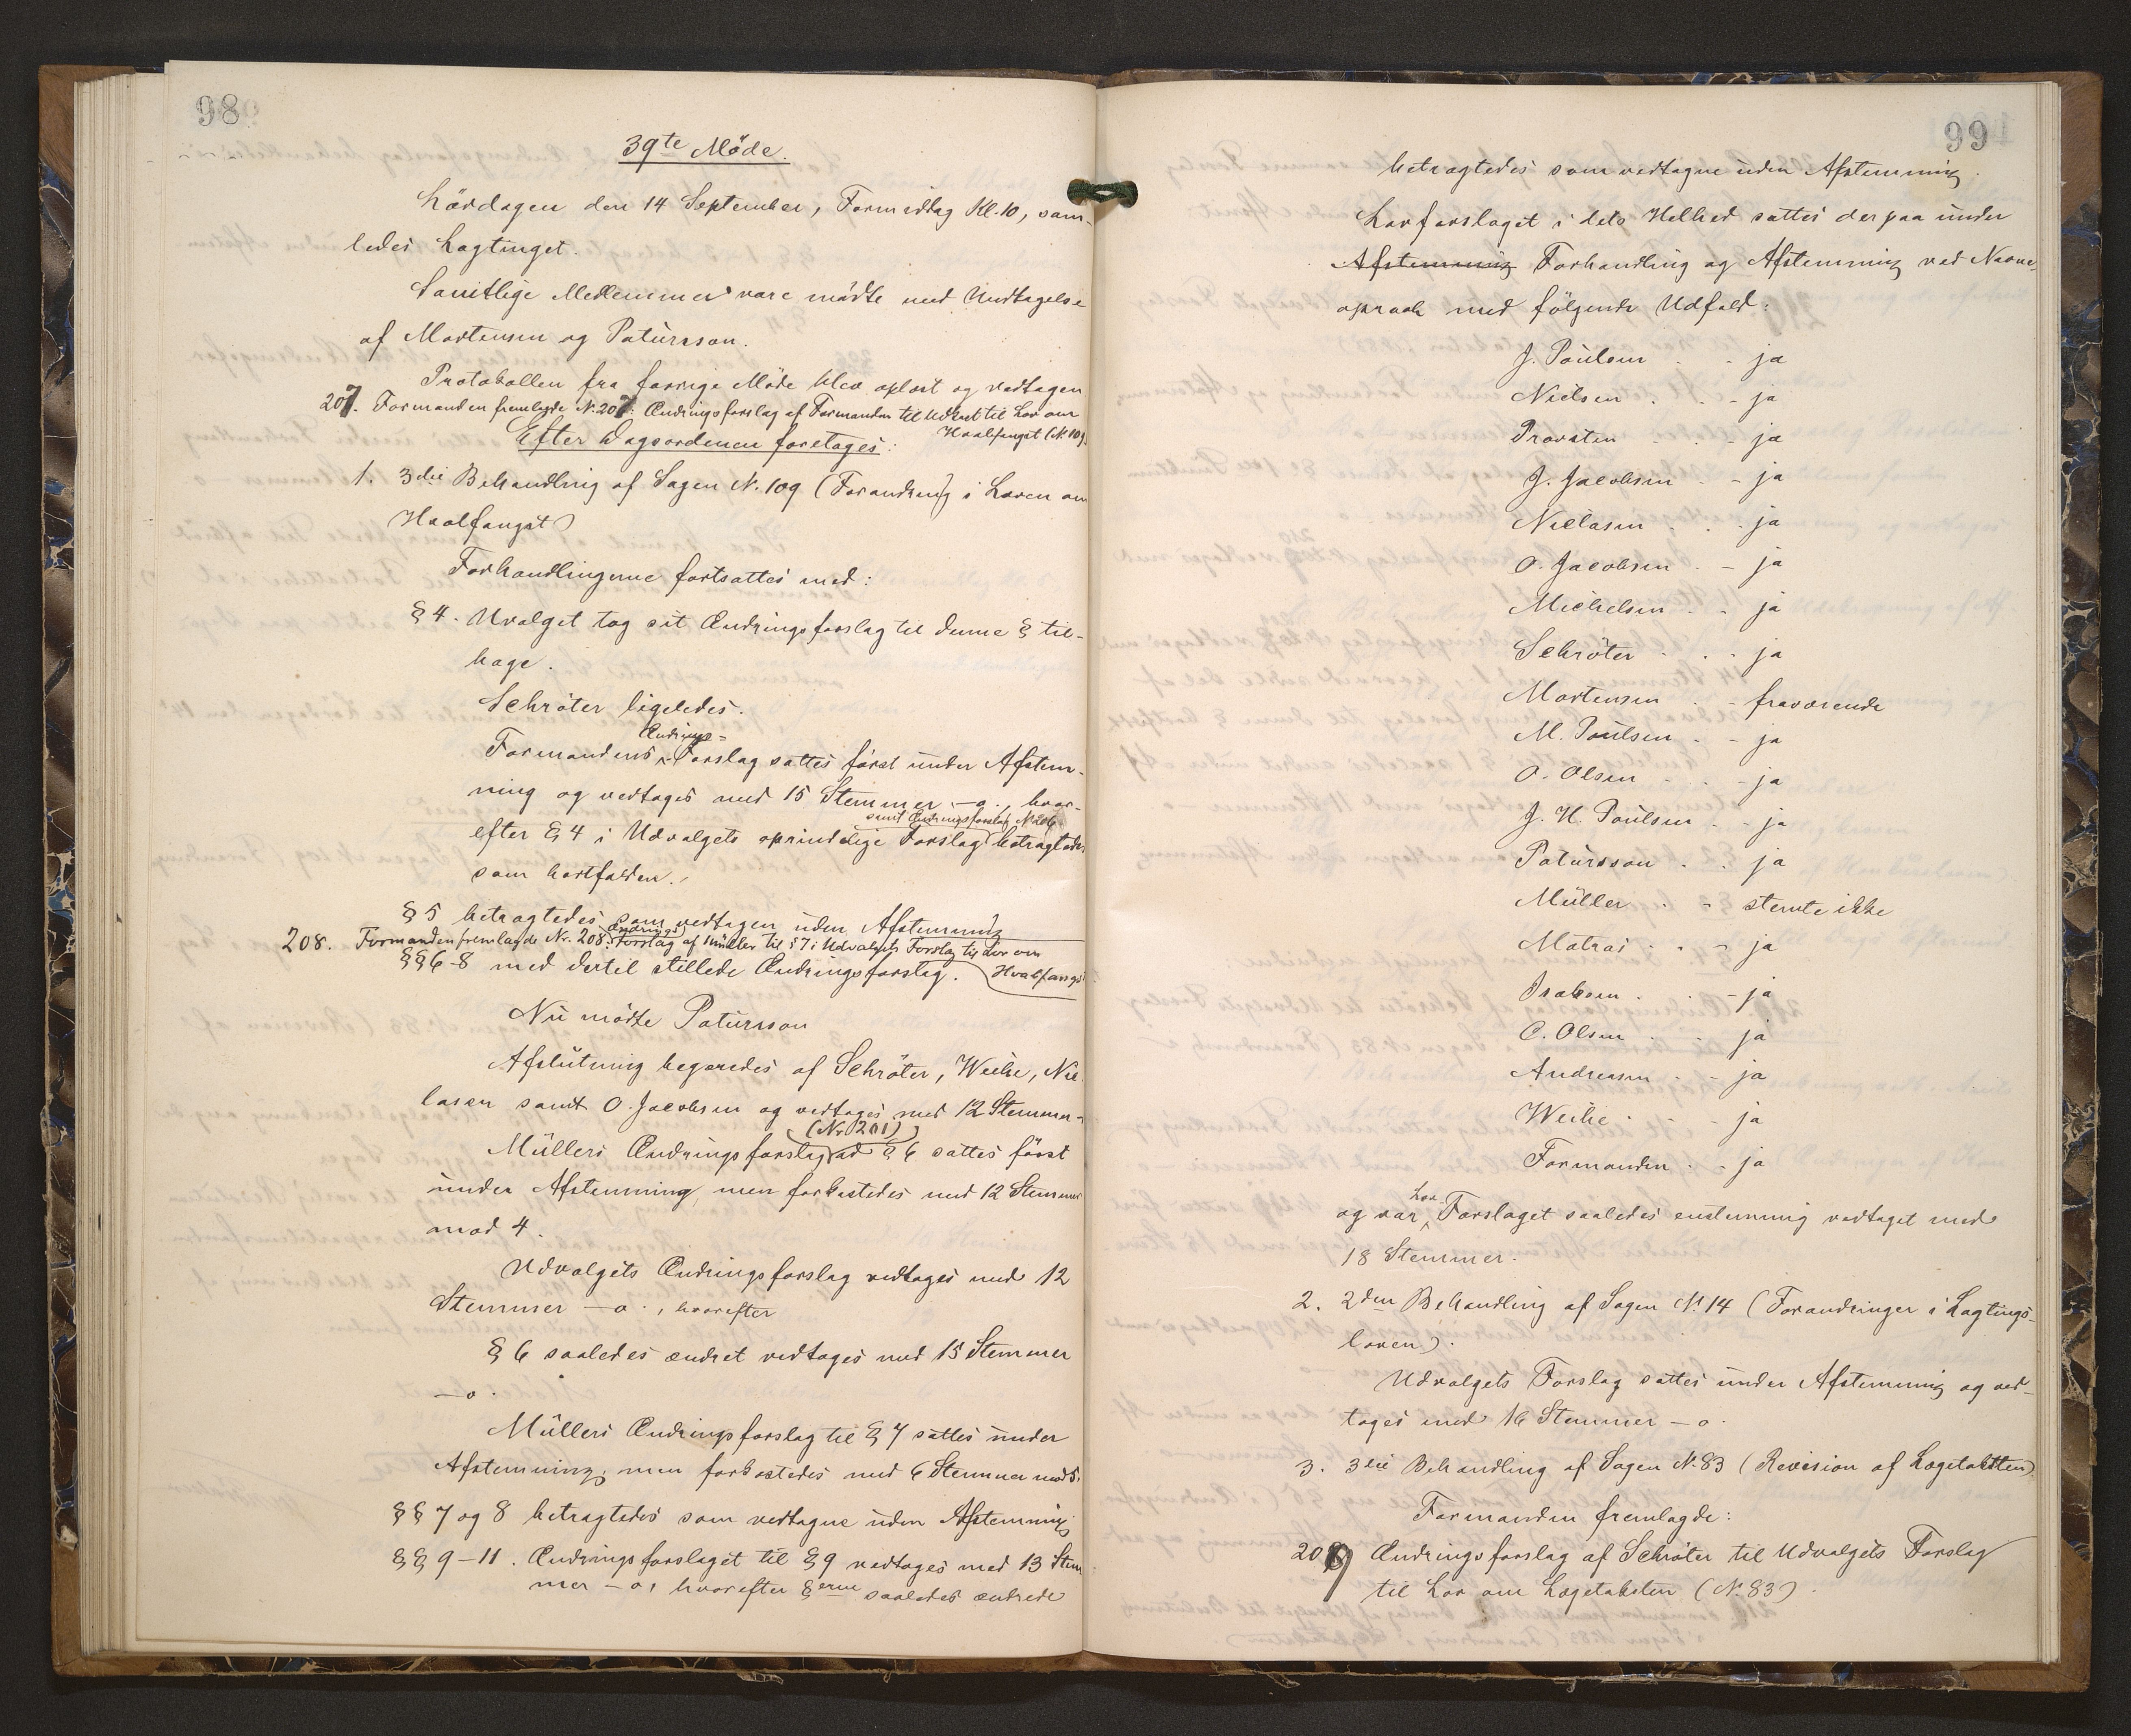 98
39te Möde.
Lördagen den 14 September, Formiddag Kl. 10, sam-
ledes Lagtinget.
Samtlige Medlemmer vare mödte med Undtagelse
af Mortensen og Patursson.
Protokollen fra forrige Möde blev oplæst og vedtagen
207. Formanden fremlagde N. 207: Ændringsforslag af Formanden til Udkast til Lov om
Hvalfangst (N. 109)
Efter Dagsordenen foretages:
1. 3die Behandling af Sagen N. 109 (Forandring i Loven om
Hvalfangst)
Forhandlingerne fortsattes med:
§ 4. Uvalget tog sit Ændringsforslag til denne § til-
bage.
Schröter ligeledes.
Ændrings-
Formandens Forslag sattes först under Afstem-
ning og vedtages med 15 Stemmer - o., hvor-
samt Ændringsforslag N. 206
efter § 4 i Udvalgets oprindelige Forslag betragtedes
som bortfalden.
§ 5 betragtedes som vedtagen uden Afstemning
208. Formanden fremlagde Nr. 208: Ændrings Forslag af Müller til § 7 i Udvalgets Forslag til Lov om
Hvalfangst
§§ 6-8 med dertil stillede Ændringsforslag.
Nu mödte Patursson
Afslutning begæredes af Schröter, Weihe, Nie
lasen samt O. Jacobsen og vedtages med 12 Stemmer -
(Nr. 201)
Müllers Ændringsforslag ad § 6 sattes först
under Afstemning, men forkastedes med 12 Stemmer
mod 4.
Udvalgets Ændringsforslag vedtages med 12
Stemmer - o., hvorefter
§ 6 saaledes ændret vedtages med 15 Stemmer
- o.
Müllers Ændringsforslag til § 7 sattes under
Afstemning, men forkastedes med 6 Stemmer mod 5.
§§ 7 og 8 betragtedes som vedtagne uden Afstemning
§§ 9-11. Ændringsforslaget til § 9 vedtages med 13 Stem
mer - o, hvorefter §erne saaledes ændrede
99
betragtedes som vedtagne uden Afstemning.
Lovforslaget i dets Helhed sattes derpaa under
Afstemning Forhandling og Afstemning ved Navne-
opraab med fölgende Udfald:
J. Poulsen - ja
Nielsen - ja
Provsten - ja
J. Jacobsen - ja
Nielasen - ja
O. Jacobsen - ja
Michelsen - ja
Schröter - ja
Mortensen - fraværende
M. Poulsen - ja
O. Olsen - ja
J. H. Poulsen - ja
Patursson - ja
Müller - stemte ikke
Matras - ja
Isaksen - ja
C. Olsen - ja
Andreasen - ja
Weihe - ja
Formanden - ja
Lov-
og var Forslaget saaledes enstemmig vedtaget med
18 Stemmer.
2. 2den Behandling af Sagen N. 14 (Forandringer i Lagtings-
loven).
Udvalgets Forslag sattes under Afstemning og ved-
tages med 16 Stemmer - o.
3. 3die Behandling af Sagen N. 83 (Revision af Lægetaksten)
Formanden fremlagde:
209 Ændringsforslag af Schröter til Udvalgets Forslag
til Lov om Lægetaksten (N. 83).